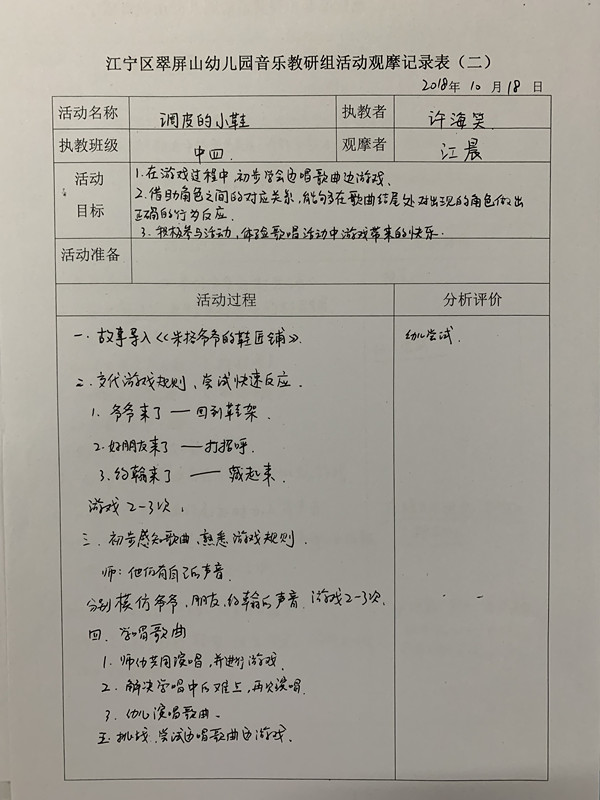 江宁区翠屏山幼儿园音乐教研组活动观摩记录表（二）
2018年10月18日
活动名称 调皮的小鞋 执教者 许海笑
执教班级 中四. 观摩者 江晨
活动目标
1.在游戏过程中,初步学会边唱歌曲边游戏.
2.借助角色之间的对应关系,能够在歌曲结尾处对出现的角色做出
正确的行为反应.
3.积极参与活动,体验歌唱活动中游戏带来的快乐.
活动准备
活动过程 分析评价
一.故事导入《朱格爷爷的鞋匠铺》. 幼儿尝试.
二.交代游戏规则、尝试快速反应.
1.爷爷来了——回到鞋架.
2.好朋友来了——打招呼.
3.约翰来了——藏起来.
游戏2-3次.
三.初步感知歌曲、熟悉游戏规则.
师:他们有自己的声音.
分别模仿爷爷、朋友、约翰的声音.游戏2-3次.
四.学唱歌曲
1.师幼共同演唱,并进行游戏.
2.解决学唱中的难点,再次演唱.
3.幼儿演唱歌曲.
五.挑战.尝试边唱歌曲边游戏.